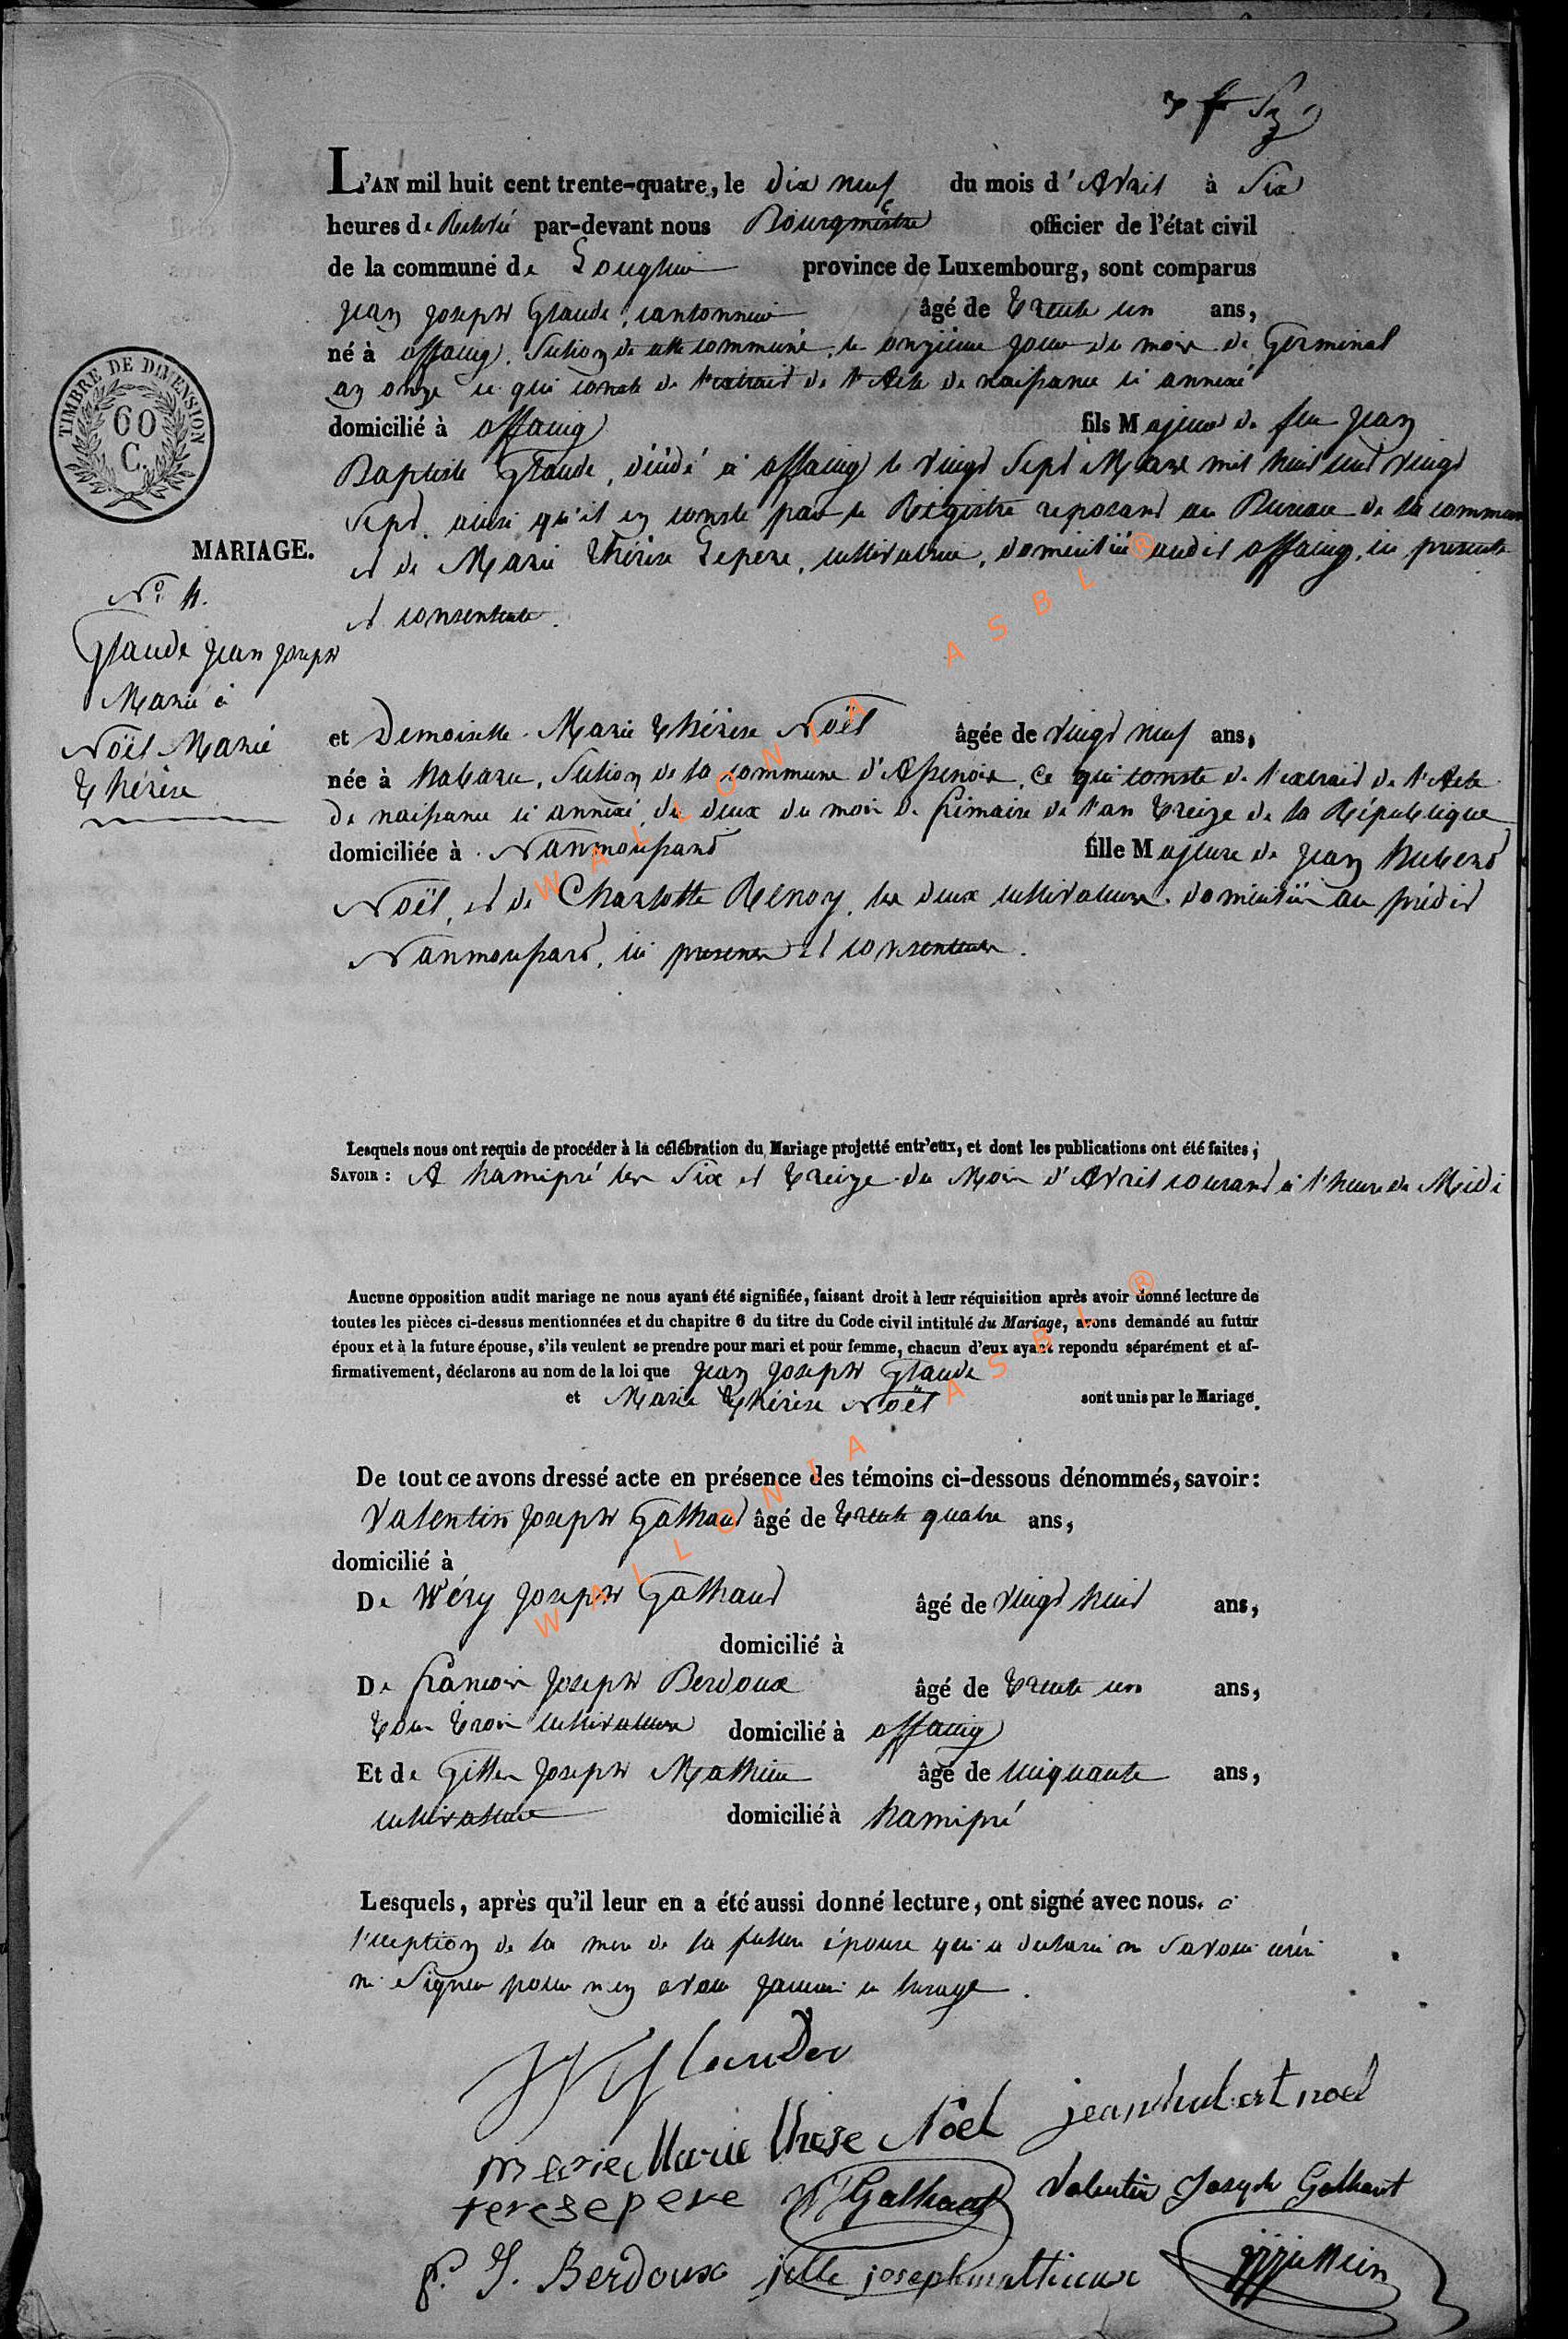 L'AN mil huit cent trente-quatre, le dix neuf du mois d'Avril à Six
heures de Relevée par-devant nous Bourgmestre officier de l'état civil
de la commune de Longlier province de Luxembourg, sont comparus
Jean Joseph Glaude, cantonnier âgé de Trente un ans,
né à offaing, Section de cette commune, le onzieme jour du mois de Germinal
an onze ce qui conste de l'extrait de l'Acte de naissance ci annexé
domicilié à offaing fils Majeur de feu Jean
Baptiste Glaude, décédé à offaing le vingt Sept Mars mil huit cent vingt
Sept, ainsi qu'il en conste par le Régistre reposant au Bureau de la commune
et de Marie Thérèse Lepere, cultivatrice, domiciliée audit offaing, ici presente
et consentante.
TIMBRE DE DIMENSION
60
C.
MARIAGE.
N° 4.
Glaude Jean Joseph
Marié à
Noël Marie
Thérèse
et Demoiselle Marie Thérèse Noël âgée de vingt neuf ans,
née à habaru, Section de la commune d'Assenois, Ce qui conste de l'extrait de l'Acte
de naissance ci annexé, du deux du mois de frimaire de l'an treize de la République
domiciliée à Nanmoussart fille Majeure de Jean hubert
Noël, et de Charlotte Renoy, les deux cultivateurs domiciliés au prédit
Nanmoussart, ici presens et consentans.
Lesquels nous ont requis de procéder à la célébration du Mariage projetté entr'eux, et dont les publications ont été faites;
SAVOIR : A hamipré les Six et treize du Mois d'Avril courant à l'heure de Midi
Aucune opposition audit mariage ne nous ayant été signifiée, faisant droit à leur réquisition après avoir donné lecture de
toutes les pièces ci-dessus mentionnées et du chapitre 6 du titre du Code civil intitulé du Mariage, avons demandé au futur
époux et à la future épouse, s'ils veulent se prendre pour mari et pour femme, chacun d'eux ayant repondu séparément et af-
firmativement, déclarons au nom de la loi que Jean Joseph Glaude
et Marie Thérèse Noël sont unis par le Mariage.
De tout ce avons dressé acte en présence des témoins ci-dessous dénommés, savoir:
Valentin Joseph Galhaut âgé de trente quatre ans,
domicilié à
De Wéry Joseph Galhaut âgé de vingt huit ans,
domicilié à
De francois Joseph Berdoux âgé de trente un ans,
tous trois cultivateurs domicilié à offaing
Et de Gilles Joseph Mathieu âgé de cinquante ans,
cultivateur domicilié à hamipré
Lesquels, après qu'il leur en a été aussi donné lecture, ont signé avec nous. à
l'exception de la mere de la future épouse qui a declaré ne Savoir écrire
ni Signer pour n'en avoir jamais eu l'usage.
Marie Therese Noël jean hubert noel
marie
terese pere W J Galhaut Valentin Joseph Galhaut
f. J. Berdoux jille joseph matthieux
WALLONIA ASBL ®
WALLONIA ASBL ®